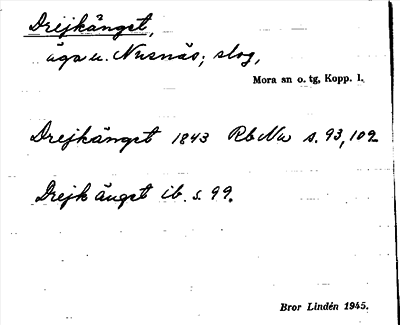 Drejkängst,
äga u. Nusnäs; slog,
Mora sn o. tg, Kopp. l.
Drejkängst 1843 RbNu s. 93, 102
Drejkängst ib. s. 99.
Bror Lindén 1945.